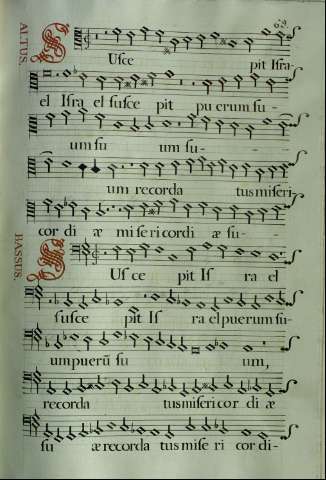 ALTUS.
SUsce pit Isra
el Isra el susce pit puerum su-
um su um su-
um recorda tus miseri-
cor di æ misericordi æ su-
BASSUS.
SUs ce pit Is ra el
susce pit Is ra el puerum su-
um puerū su um,
recorda tus misericor di æ
su æ recorda tus mise ri cordi-